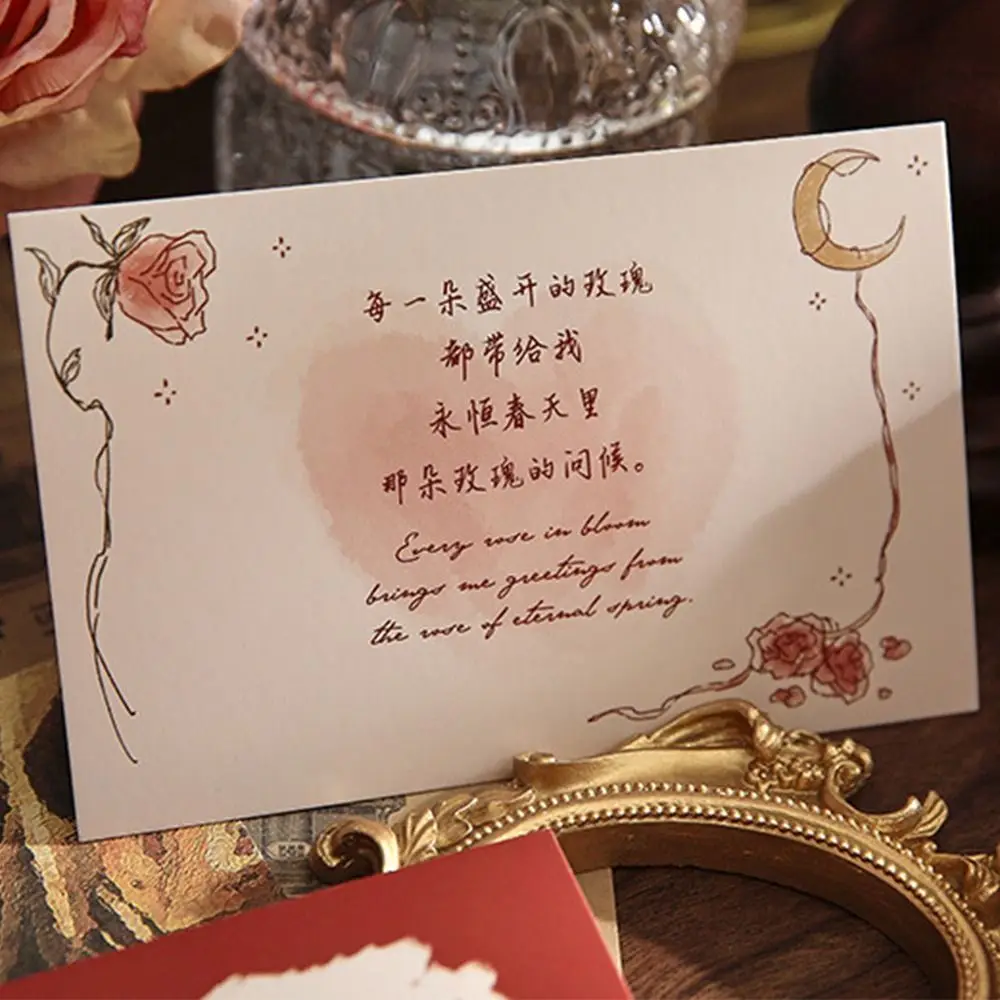 每一朵盛开的玫瑰
都带给我
永恒春天里
那朵玫瑰的问候。
Every rose in bloom
brings me greetings from
the rose of eternal spring.